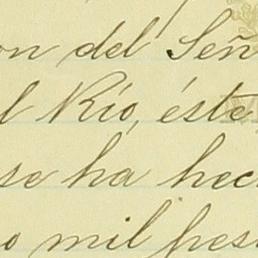 on del Señ
l Río, éste
se ha hec
o mil pes